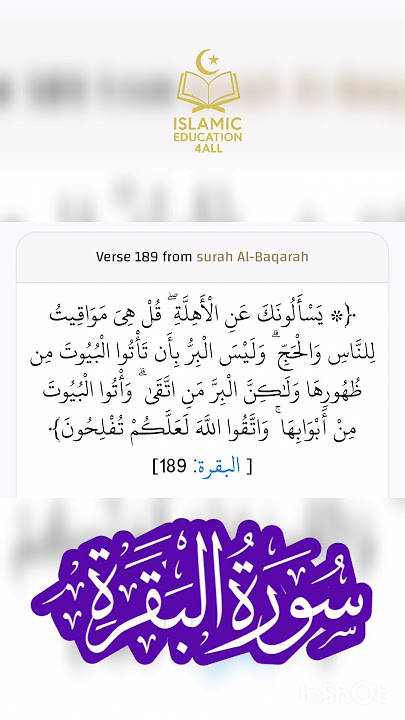 ISLAMIC
EDUCATION
4ALL
Verse 189 from surah Al-Baqarah
﴿۞ يَسْأَلُونَكَ عَنِ الْأَهِلَّةِ ۖ قُلْ هِيَ مَوَاقِيتُ
لِلنَّاسِ وَالْحَجِّ ۗ وَلَيْسَ الْبِرُّ بِأَن تَأْتُوا الْبُيُوتَ مِن
ظُهُورِهَا وَلَٰكِنَّ الْبِرَّ مَنِ اتَّقَىٰ ۗ وَأْتُوا الْبُيُوتَ
مِنْ أَبْوَابِهَا ۚ وَاتَّقُوا اللَّهَ لَعَلَّكُمْ تُفْلِحُونَ﴾
[ البقرة: 189]
سُورَةُ البَقَرَةِ
InShOt